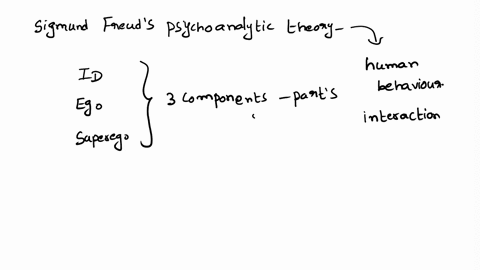 Sigmund Freud's psychoanalytic theory-
human
behaviour
interaction
ID
Ego
Superego
3 components - part's